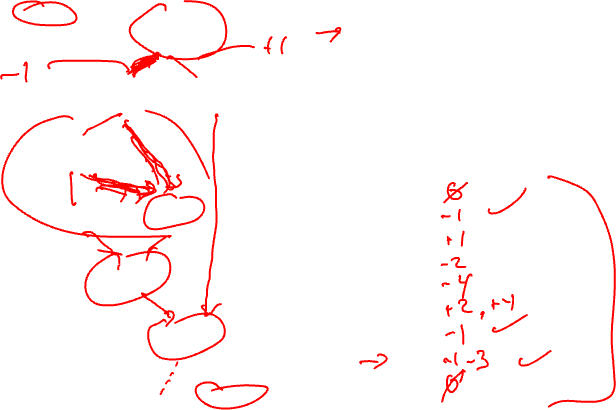 +1
-1
0
-1
+1
-2
-4
+2, +4
-1
-1 -3
0